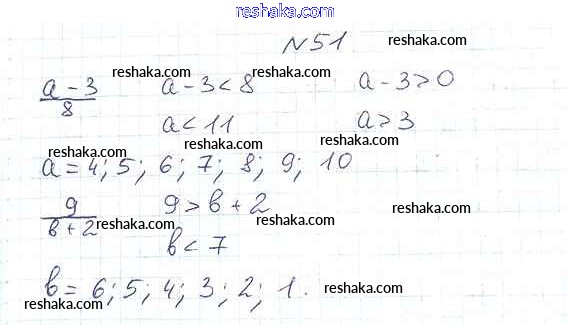 reshaka.com
№51. reshaka.com
a-3/8 reshaka.com a-3<8 reshaka.com a-3>0 reshaka.com
a<11 a>3
reshaka.com reshaka.com reshaka.com
a=4; 5; 6; 7; 8; 9; 10
reshaka.com
9/в+2 reshaka.com 9>в+2 reshaka.com reshaka.com
в<7
в=6; 5; 4; 3; 2; 1. reshaka.com reshaka.com
reshaka.com